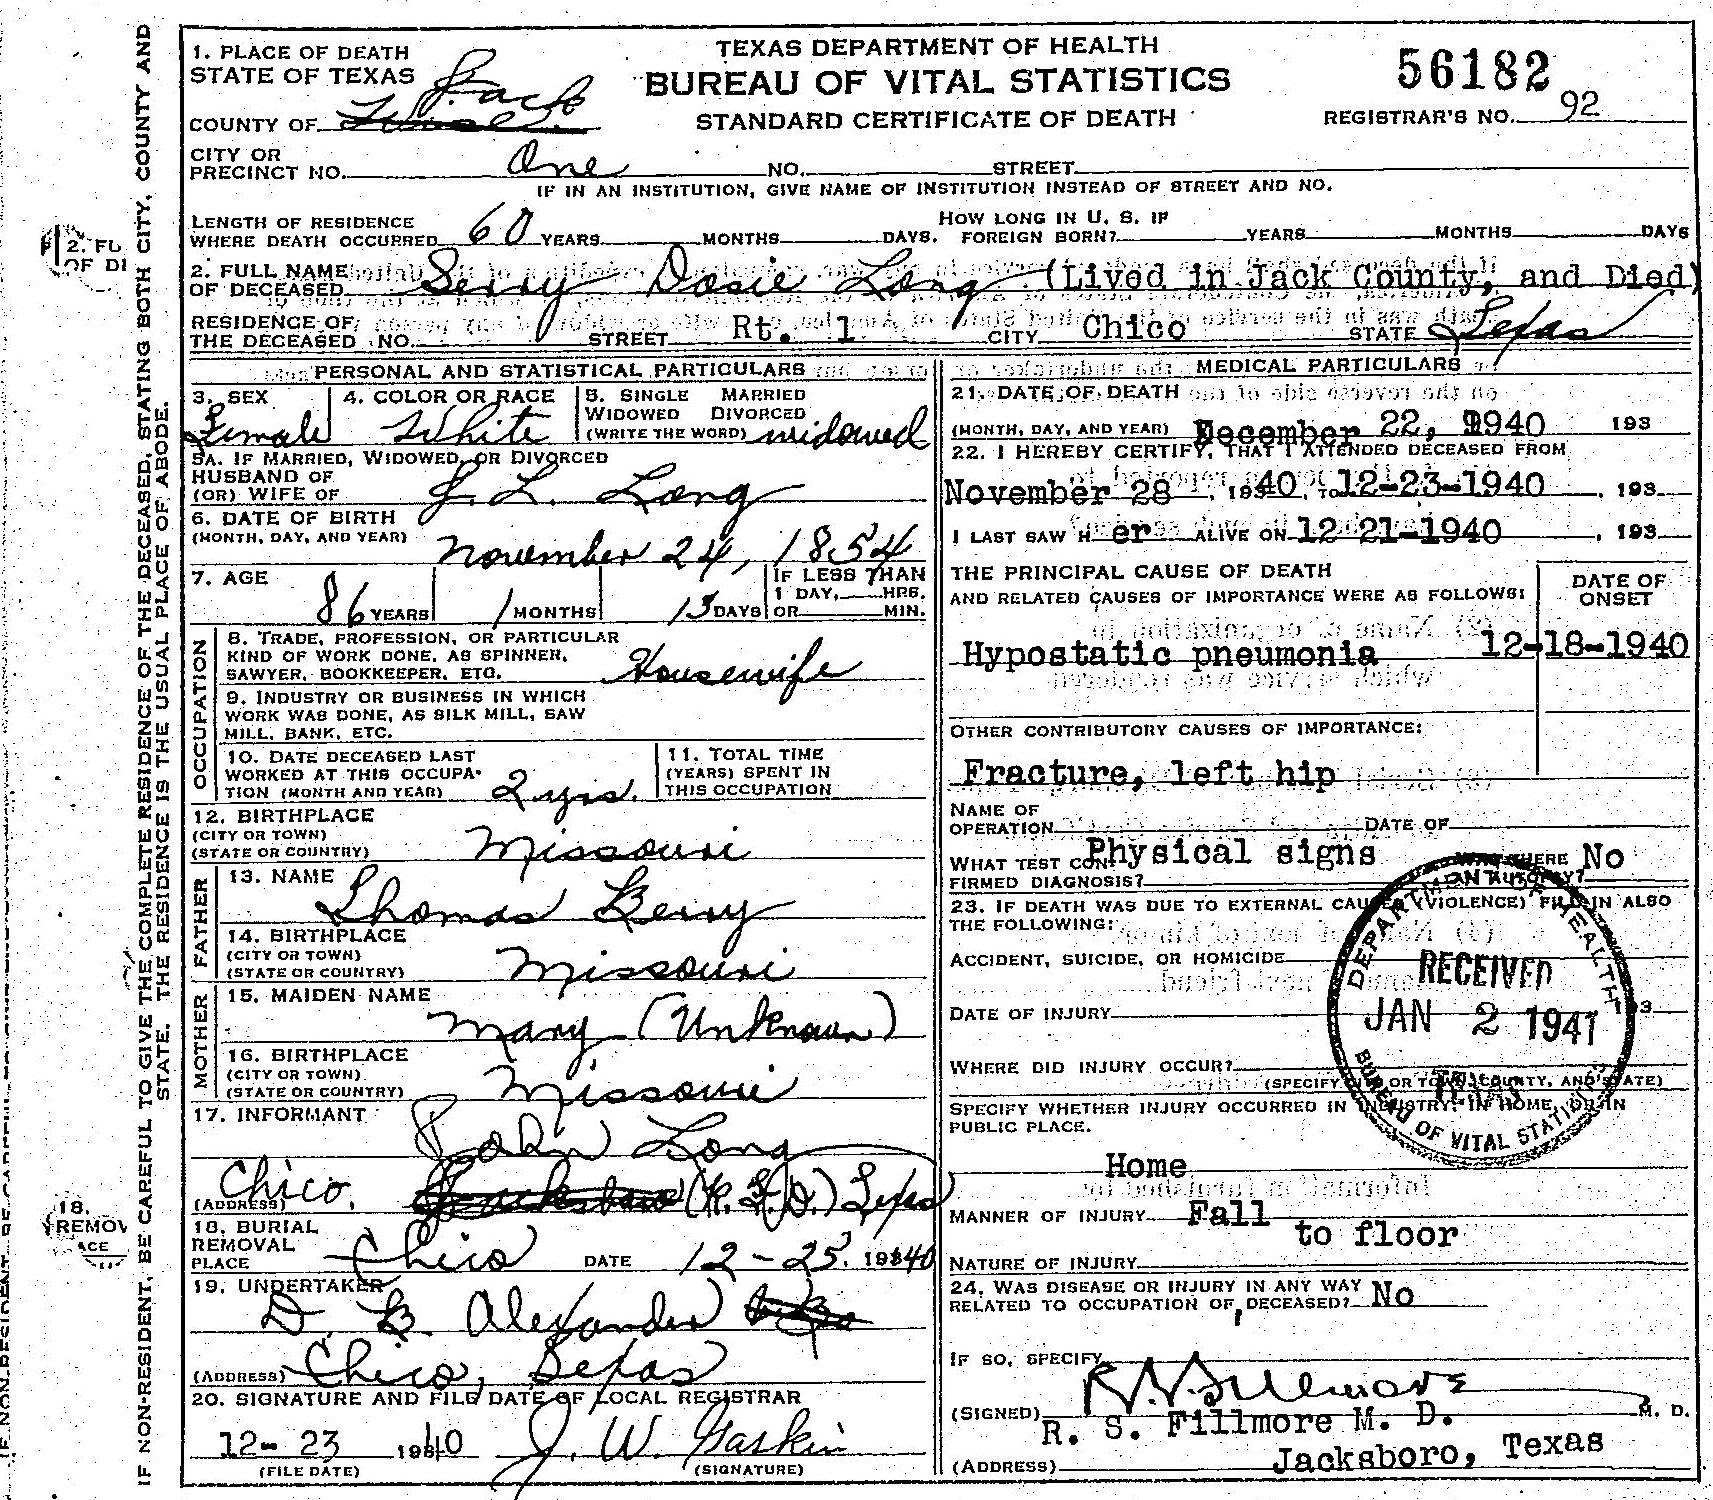 1. PLACE OF DEATH
STATE OF TEXAS
COUNTY OF Wise Jack
TEXAS DEPARTMENT OF HEALTH
BUREAU OF VITAL STATISTICS
STANDARD CERTIFICATE OF DEATH
56182
REGISTRAR'S NO. 92
CITY OR
PRECINCT NO. One NO. STREET
IF IN AN INSTITUTION, GIVE NAME OF INSTITUTION INSTEAD OF STREET AND NO.
LENGTH OF RESIDENCE
WHERE DEATH OCCURRED 60 YEARS MONTHS DAYS.
HOW LONG IN U. S. IF
FOREIGN BORN? YEARS MONTHS DAYS
2. FULL NAME
OF DECEASED Serry Dosie Long (Lived in Jack County, and Died)
RESIDENCE OF
THE DECEASED NO. STREET Rt. 1 CITY Chico STATE Texas
PERSONAL AND STATISTICAL PARTICULARS
3. SEX
Female
4. COLOR OR RACE
White
5. SINGLE MARRIED
WIDOWED DIVORCED
(WRITE THE WORD) widowed
5A. IF MARRIED, WIDOWED, OR DIVORCED
HUSBAND OF
(OR) WIFE OF J. L. Long
6. DATE OF BIRTH
(MONTH, DAY, AND YEAR) November 24, 1854
7. AGE
86 YEARS 1 MONTHS 13 DAYS
IF LESS THAN
1 DAY, HRS.
OR MIN.
OCCUPATION
8. TRADE, PROFESSION, OR PARTICULAR
KIND OF WORK DONE, AS SPINNER,
SAWYER, BOOKKEEPER, ETC. Housewife
9. INDUSTRY OR BUSINESS IN WHICH
WORK WAS DONE, AS SILK MILL, SAW
MILL, BANK, ETC.
10. DATE DECEASED LAST
WORKED AT THIS OCCUPA-
TION (MONTH AND YEAR) 2 yrs.
11. TOTAL TIME
(YEARS) SPENT IN
THIS OCCUPATION
12. BIRTHPLACE
(CITY OR TOWN)
(STATE OR COUNTRY) Missouri
FATHER
13. NAME
Thomas Berry
14. BIRTHPLACE
(CITY OR TOWN)
(STATE OR COUNTRY) Missouri
MOTHER
15. MAIDEN NAME
Mary (Unknown)
16. BIRTHPLACE
(CITY OR TOWN)
(STATE OR COUNTRY) Missouri
17. INFORMANT
John Long
(ADDRESS) Chico, (R.F.D.) Texas
18. BURIAL
REMOVAL
PLACE Chico DATE 12-25. 1940
19. UNDERTAKER
D. B. Alexander
(ADDRESS) Chico, Texas
20. SIGNATURE AND FILE DATE OF LOCAL REGISTRAR
12-23 1940 J. W. Gaskin
(FILE DATE) (SIGNATURE)
MEDICAL PARTICULARS
21. DATE OF DEATH
(MONTH, DAY, AND YEAR) December 22, 1940 193
22. I HEREBY CERTIFY, THAT I ATTENDED DECEASED FROM
November 28, 1940, TO 12-23-1940, 193
I LAST SAW H er ALIVE ON 12-21-1940, 193
THE PRINCIPAL CAUSE OF DEATH
AND RELATED CAUSES OF IMPORTANCE WERE AS FOLLOWS:
DATE OF
ONSET
Hypostatic pneumonia 12-18-1940
OTHER CONTRIBUTORY CAUSES OF IMPORTANCE:
Fracture, left hip
NAME OF
OPERATION DATE OF
WHAT TEST CON-
FIRMED DIAGNOSIS? Physical signs
WAS THERE
AN AUTOPSY? No
23. IF DEATH WAS DUE TO EXTERNAL CAUSES (VIOLENCE) FILL IN ALSO
THE FOLLOWING:
ACCIDENT, SUICIDE, OR HOMICIDE
DATE OF INJURY 193
WHERE DID INJURY OCCUR?
(SPECIFY CITY OR TOWN, COUNTY, AND STATE)
SPECIFY WHETHER INJURY OCCURRED IN INDUSTRY, IN HOME, OR IN
PUBLIC PLACE.
Home
MANNER OF INJURY Fall
to floor
NATURE OF INJURY
24. WAS DISEASE OR INJURY IN ANY WAY
RELATED TO OCCUPATION OF DECEASED? No
IF SO, SPECIFY
(SIGNED) R. S. Fillmore M. D.
R. S. Fillmore M. D.
(ADDRESS) Jacksboro, Texas
DEPARTMENT OF HEALTH
RECEIVED
JAN 2 1941
TEXAS
BUREAU OF VITAL STATISTICS
IF NON-RESIDENT, BE CAREFUL TO GIVE THE COMPLETE RESIDENCE OF THE DECEASED, STATING BOTH CITY, COUNTY AND
STATE. THE RESIDENCE IS THE USUAL PLACE OF ABODE.
2. FU
OF DE
18.
REMOV
ACE